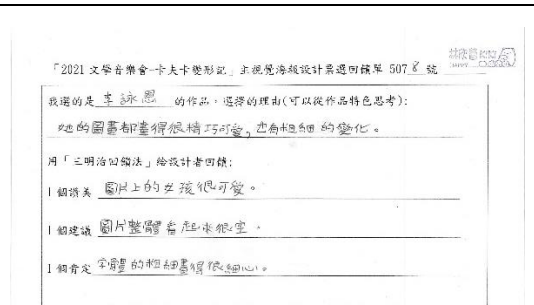 「2021 文學音樂會-卡夫卡變形記」主視覺海報設計票選回饋單 507 8 號
我選的是 李詠恩 的作品,選擇的理由(可以從作品特色思考):
她的圖畫都畫得很精巧可愛,也有粗細的變化。
用「三明治回饋法」給設計者回饋:
1 個讚美 圖片上的女孩很可愛。
1 個建議 圖片整體看起來很空。
1 個肯定 字體的粗細畫得很細心。